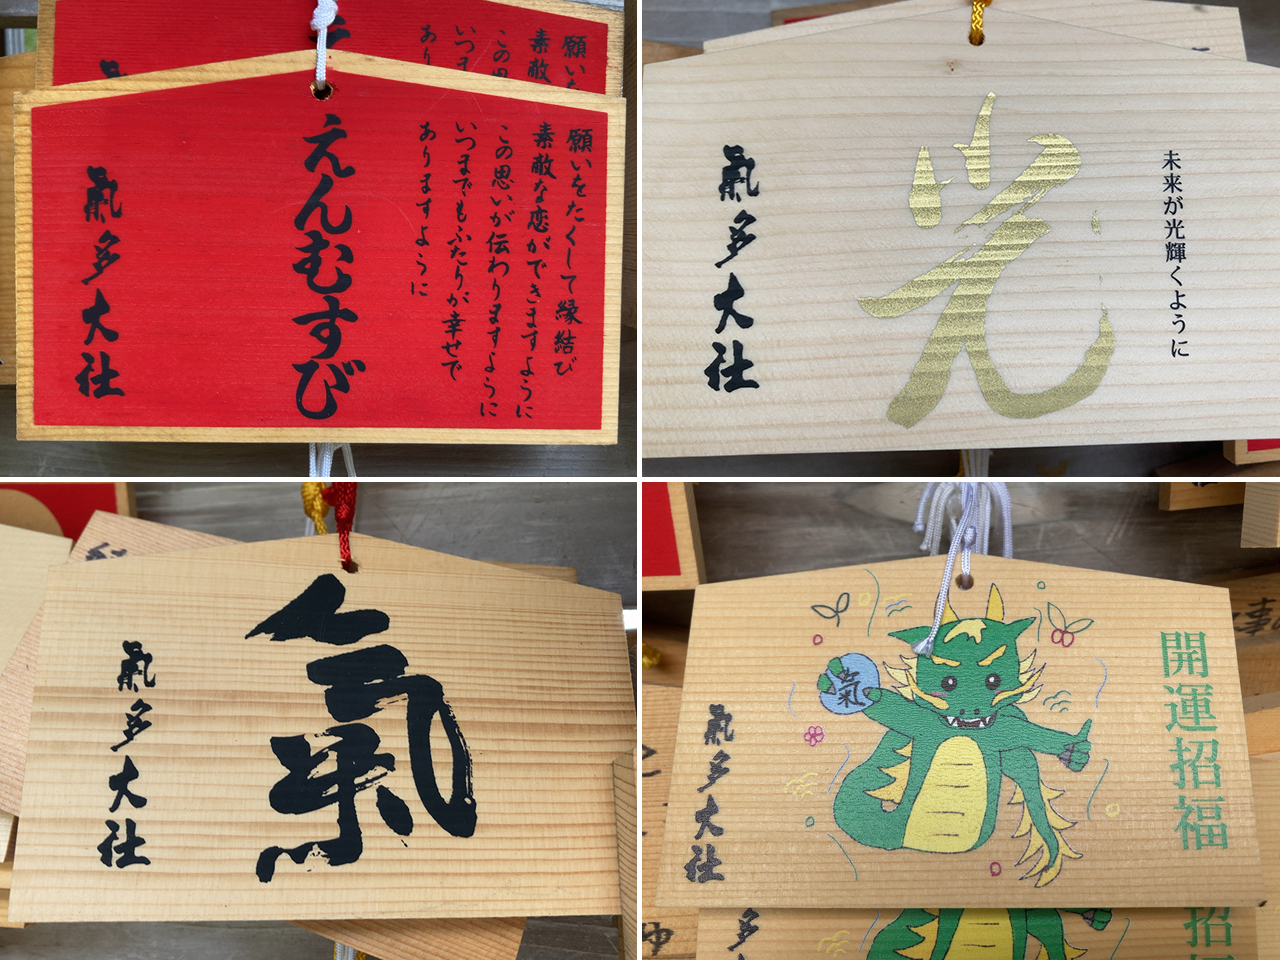 願いをたくして縁結び
素敵な恋ができますように
この思いが伝わりますように
いつまでもふたりが幸せで
ありますように
えんむすび
氣多大社
願い
素敵
この思
いつ
あり
未来が光輝くように
光
氣多大社
氣
氣多大社
開運招福
氣
氣多大社
招